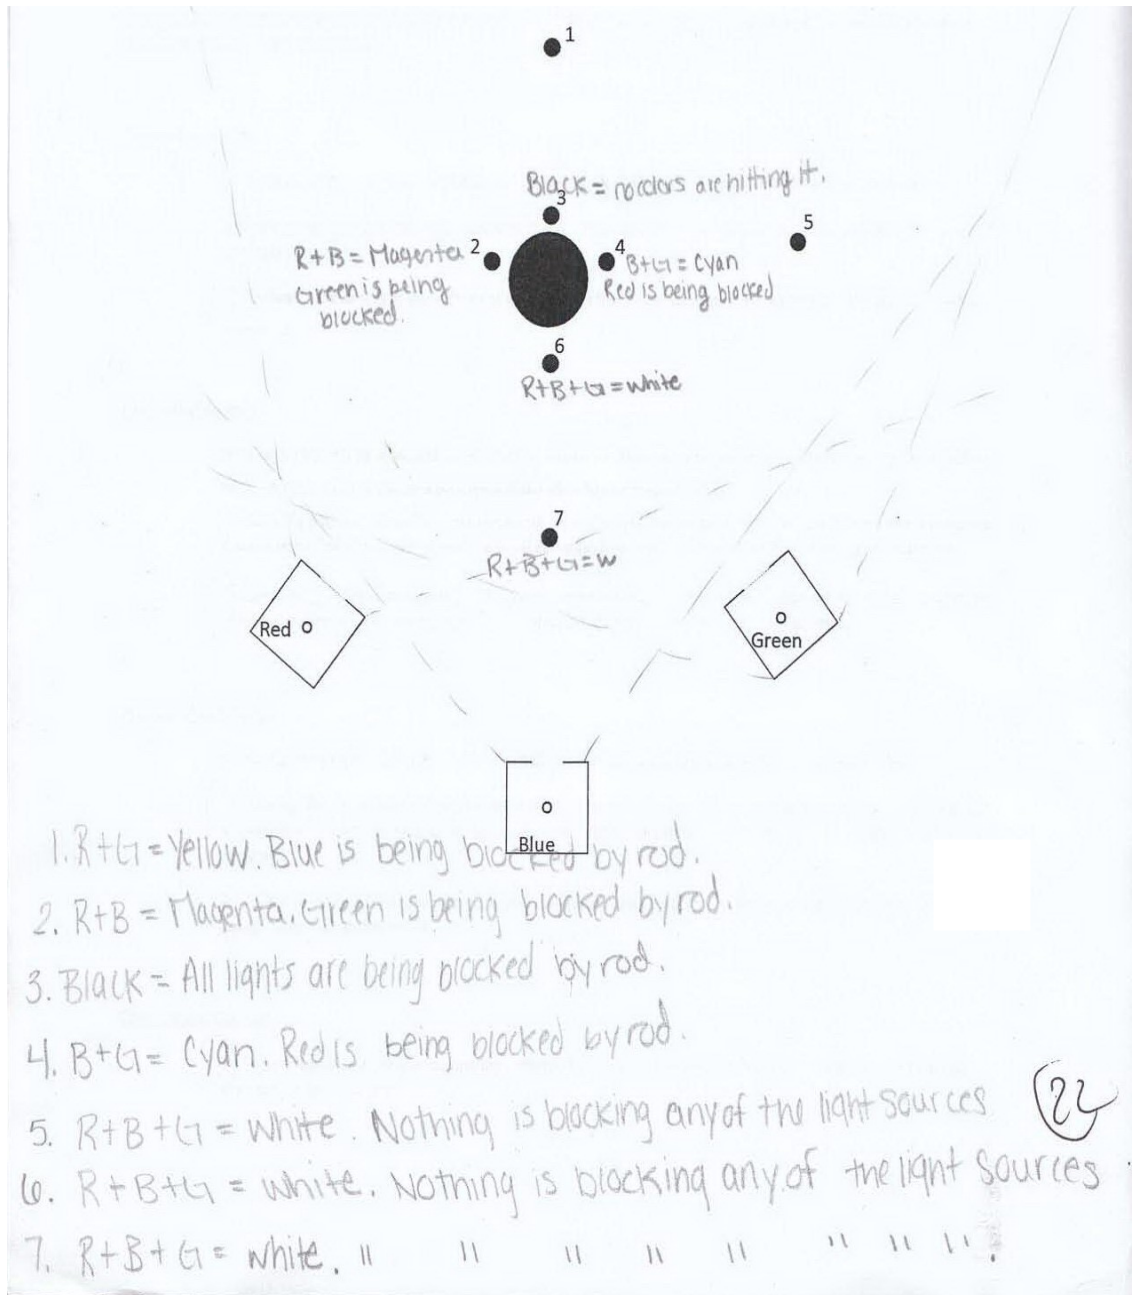 1
Black = no colors are hitting it.
3
5
2
R+B = Magenta
Green is being
blocked.
4
B+G = Cyan
Red is being blocked
6
R+B+G = White
7
R+B+G = W
Red
Green
Blue
1. R+G = Yellow. Blue is being blocked by rod.
2. R+B = Magenta. Green is being blocked by rod.
3. Black = All lights are being blocked by rod.
4. B+G = Cyan. Red is being blocked by rod.
5. R+B+G = White. Nothing is blocking any of the light sources
22
6. R+B+G = white. Nothing is blocking any of the light sources
7. R+B+G = white. " " " " " " " " .